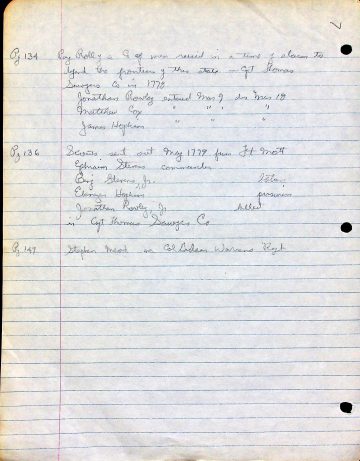 7
Pg 134 Pay Roll of a Co of men raised in a time of alarm to
defend the frontiers of this state — Cpt Thomas
Sawyers Co in 1779
Jonathan Rowley entered Mar 9 dis Mar 18
Matthew Cox " " "
James Hopkins " " "
Pg 136 Scouts sent out May 1779 from Ft Mott
Ephraim Stevens commander
Benj Stevens, Jr. taken
Ebenezer Hopkins prisoners
Jonathan Rowley Jr killed
in Cpt Thomas Sawyers Co
Pg 147 Stephen Mead in Col Gideon Warrens Regt